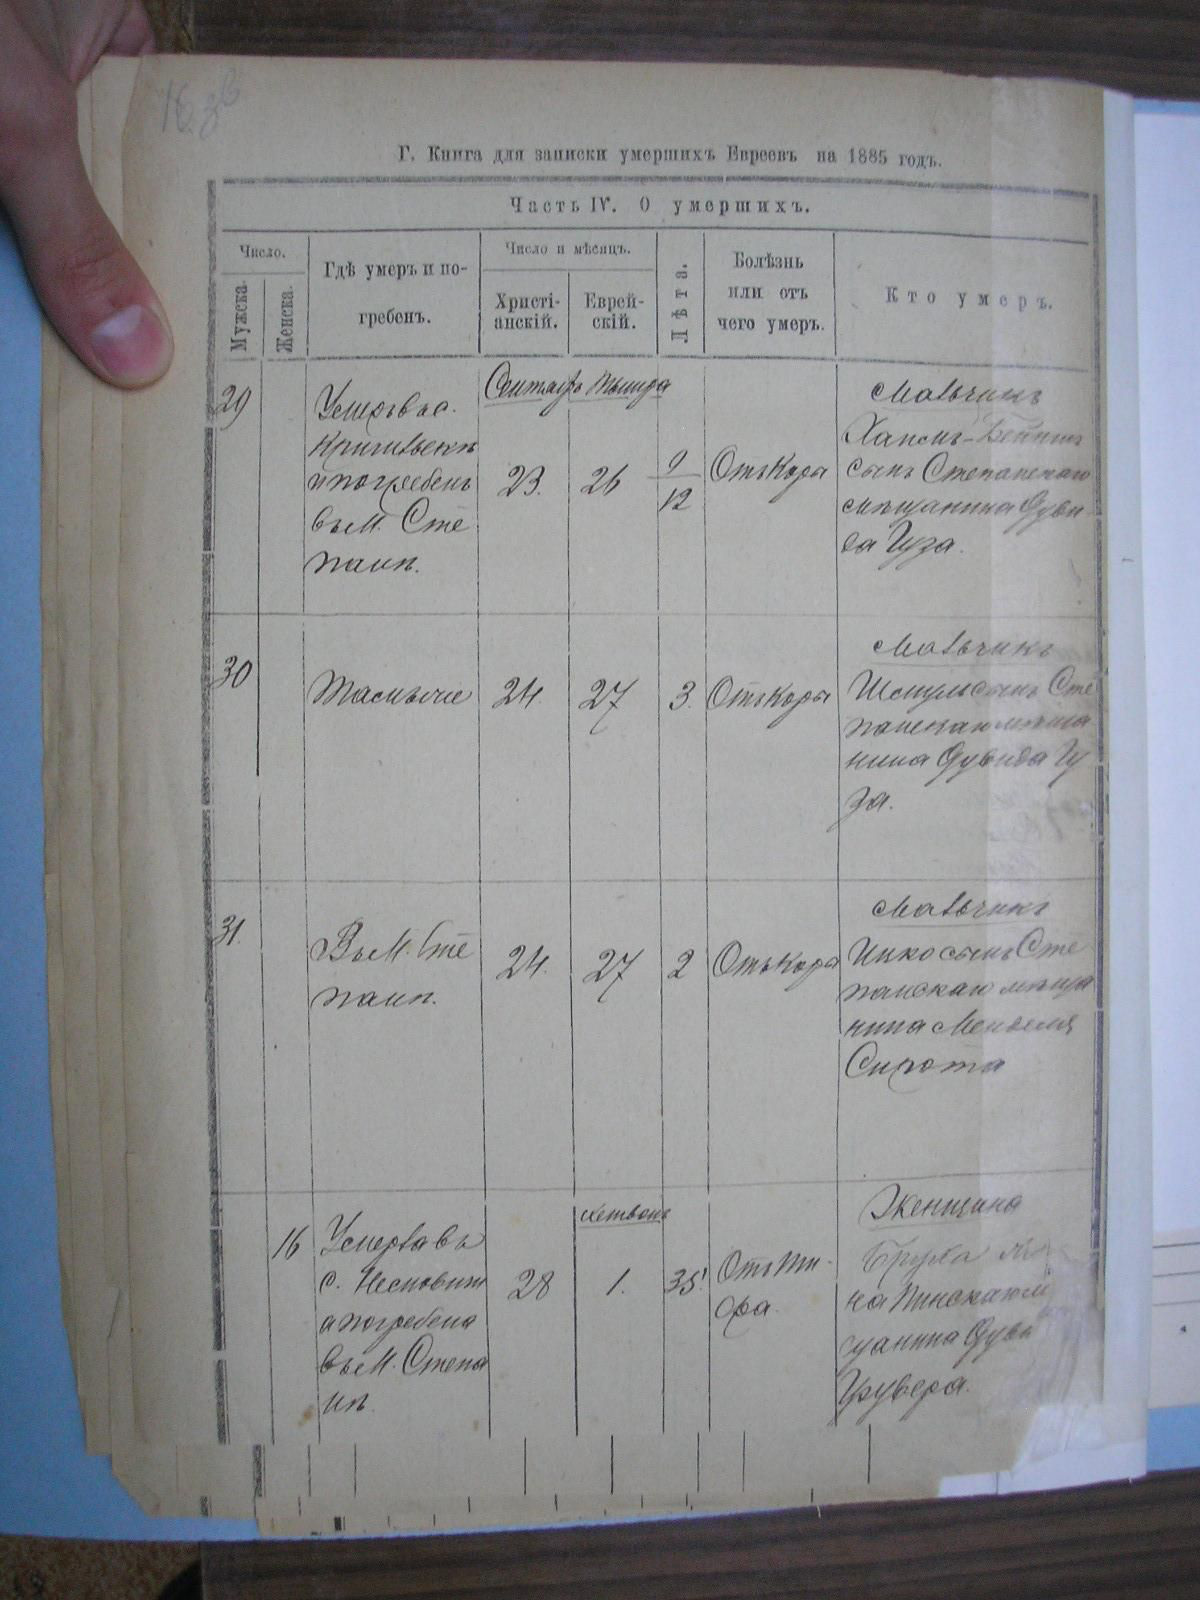 Г. Книга для записки умершихъ Евреевъ на 1885 годъ.
Часть IV. О умершихъ.
Число.
Мужска.
Женска.
Гдѣ умеръ и по-
гребенъ.
Число и мѣсяцъ.
Христі-
анскій.
Еврей-
скій.
Лѣта.
Болѣзнь
или отъ
чего умеръ.
Кто умеръ.
29
Умеръ въ с.
и погребенъ
въ м. Сте
пани.
Сентябр Тышра
23.
26
9
12
Отъ Кора
Мальчикъ
Хаимъ-
сынъ Степанскаго
мѣщанина Дуви
да Гуза.
30
Тамъ же
24.
27
3.
Отъ Коры
Мальчикъ
Шмуль сынъ Сте
панскаго мѣща
нина Дувида Гу
за.
31.
Въ м. Сте
пани.
24.
27
2
Отъ Кора
Мальчикъ
Ицко сынъ Сте
панскаго мѣща
нина Менделя
Сирота
16
Умерла въ
с.
а погребена
въ м. Степа
нѣ.
28
Хешвонъ
1.
35.
Отъ Ти-
фа.
Женщина
на Пинскаго м
щанина Дуви
Грувера.